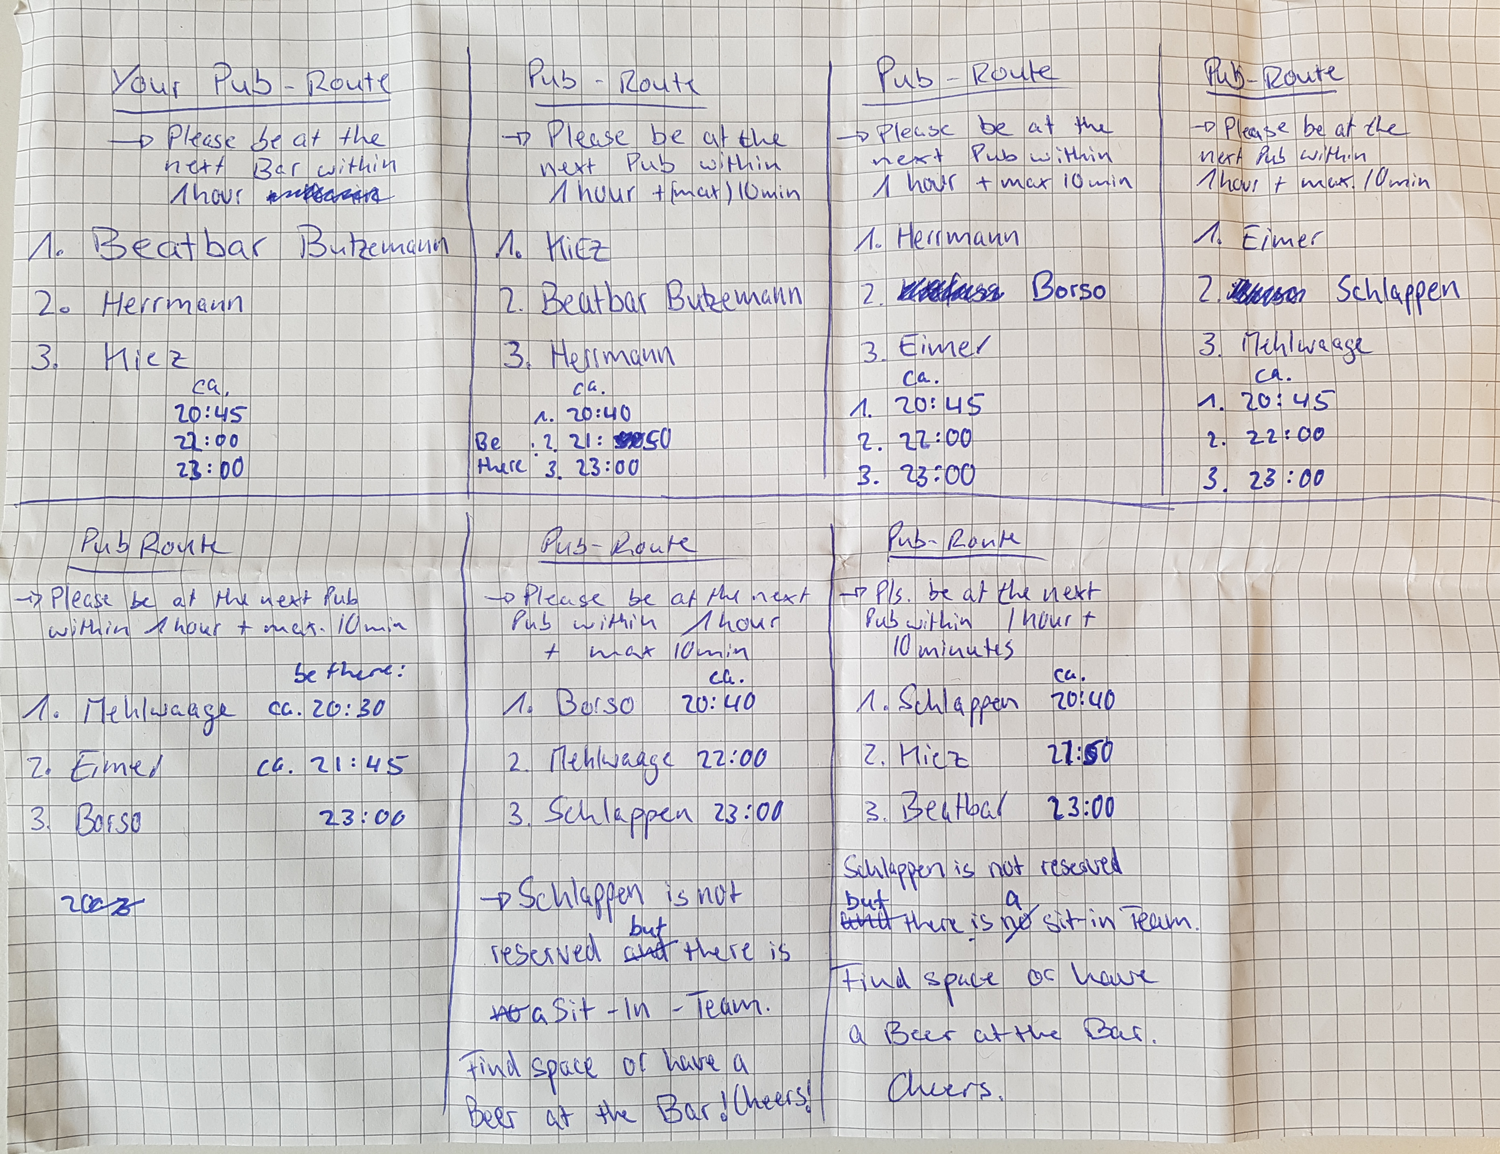 Your Pub-Route
→ Please be at the
next Bar within
1 hour
1. Beatbar Butzemann
2. Herrmann
3. Kiez
ca.
20:45
22:00
23:00
Pub-Route
→ Please be at the
next Pub within
1 hour + (max) 10min
1. KiEz
2. Beatbar Butzemann
3. Herrmann
ca.
1. 20:40
Be : 2. 21:50
there 3. 23:00
Pub-Route
→ Please be at the
next Pub within
1 hour + max 10min
1. Herrmann
2. Borso
3. Eimer
ca.
1. 20:45
2. 22:00
3. 23:00
Pub-Route
→ Please be at the
next Pub within
1 hour + max. 10min
1. Eimer
2. Schlappen
3. Mehlwaage
ca.
1. 20:45
2. 22:00
3. 23:00
Pub Route
→ Please be at the next Pub
within 1 hour + max. 10min
be there:
1. Mehlwaage ca. 20:30
2. Eimer ca. 21:45
3. Borso 23:00
Pub-Route
→ Please be at the next
Pub within 1 hour
+ max 10min
ca.
1. Borso 20:40
2. Mehlwaage 22:00
3. Schlappen 23:00
→ Schlappen is not
reserved but there is
a Sit-In-Team.
Find space or have a
Beer at the Bar! Cheers!
Pub-Route
→ Pls. be at the next
Pub within 1 hour +
10 minutes
ca.
1. Schlappen 20:40
2. Kiez 21:50
3. Beatbar 23:00
Schlappen is not reserved
but there is a sit-in Team.
Find space or have
a Beer at the Bar.
Cheers.